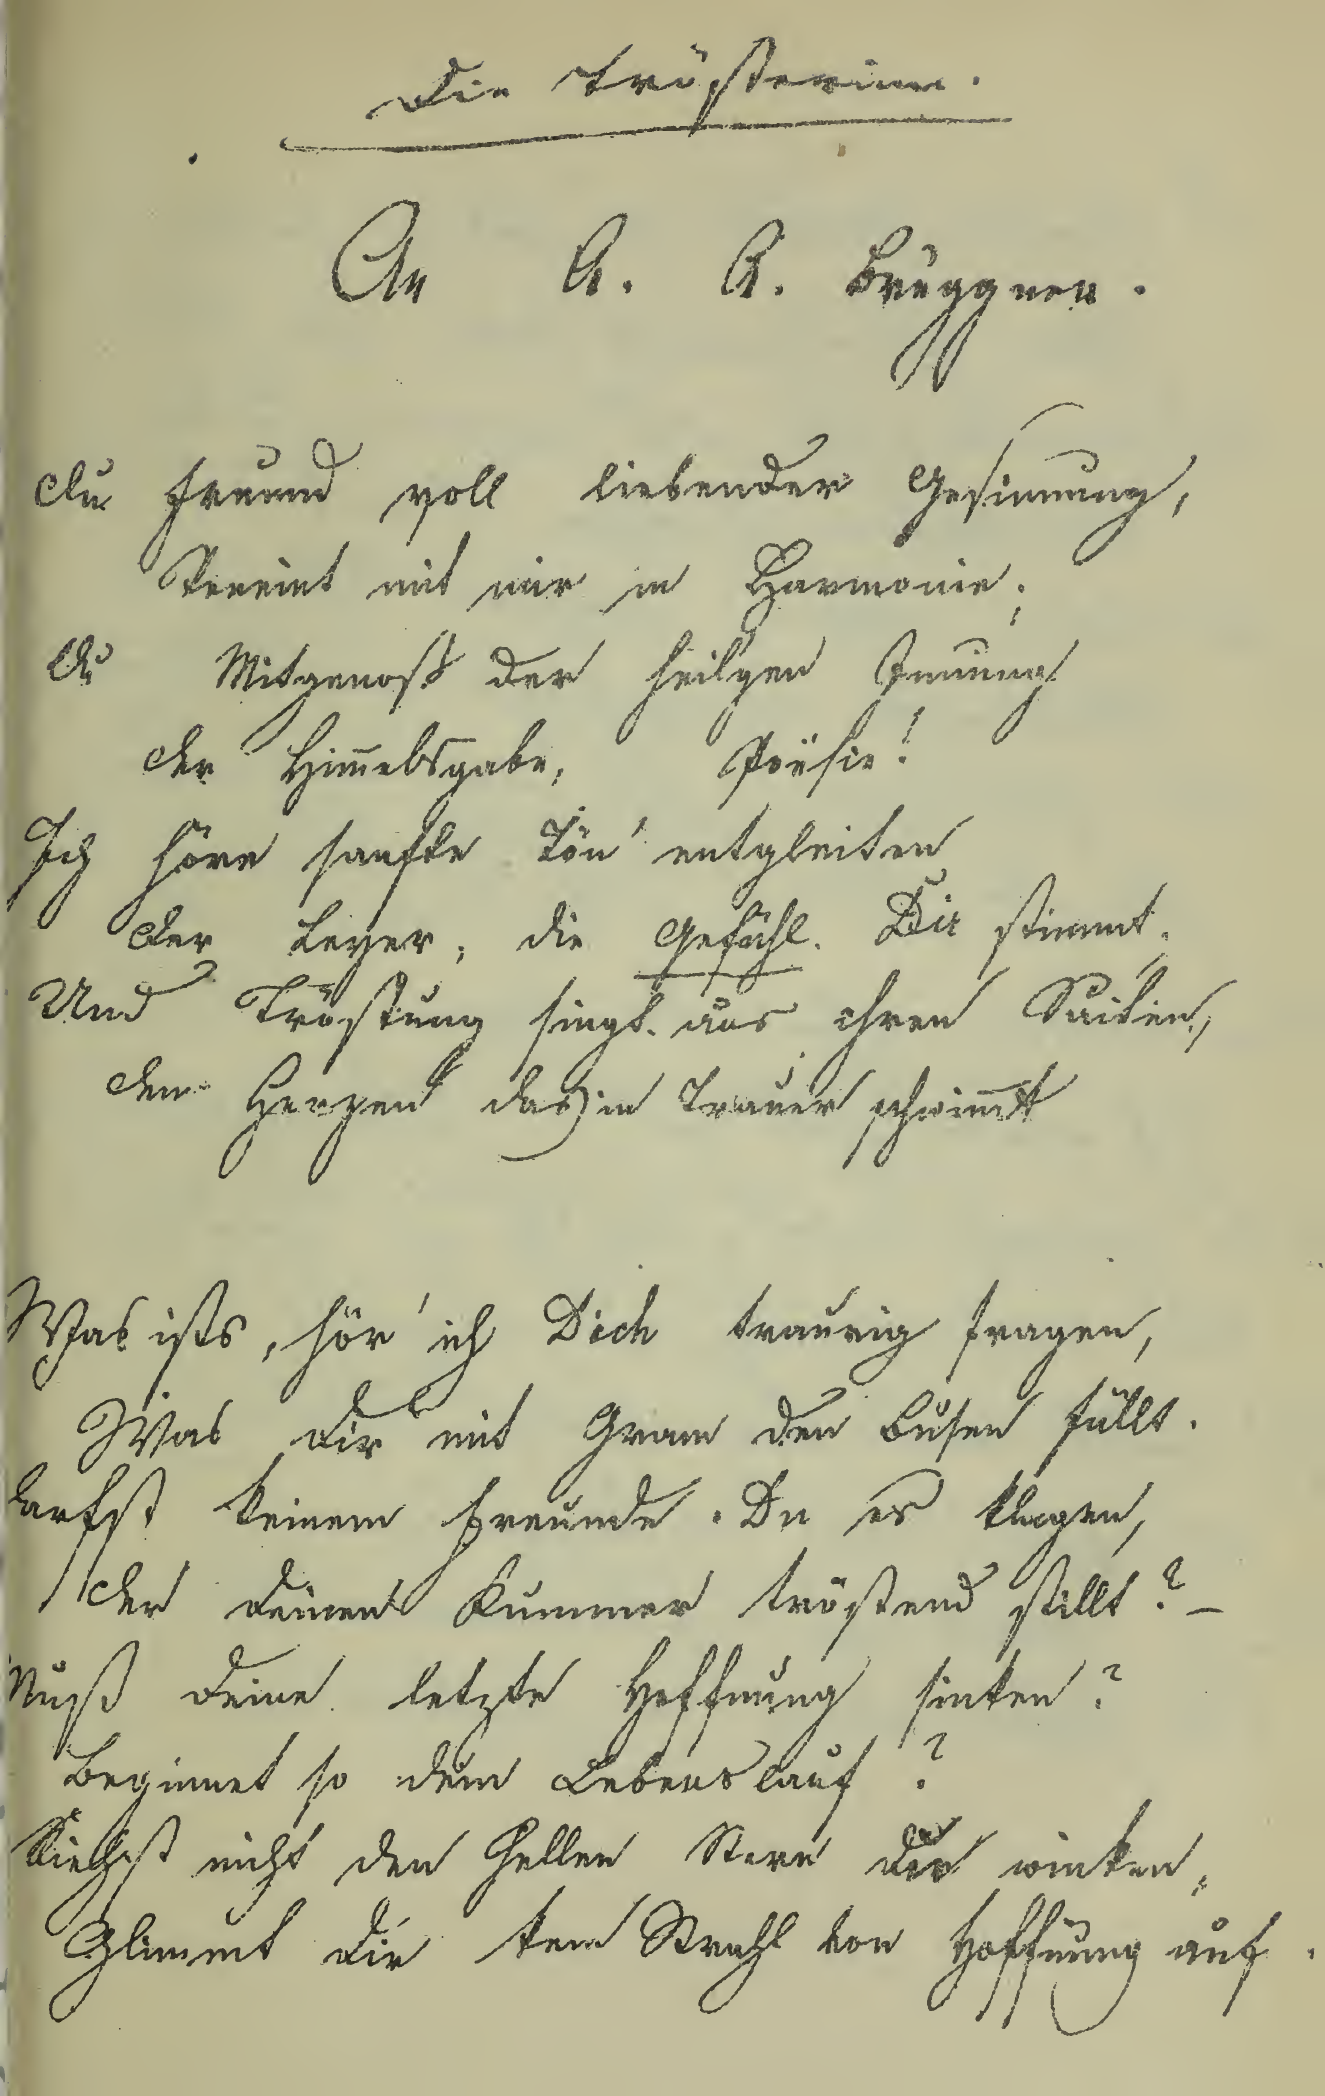 Die Trösterinn.
An A. A. Brüggner.
Du Freund voll liebender Gesinnung,
Vereint mit mir in Harmonie;
Du Mitgenoß der heil'gen Innung
Der Him̄elsgabe, Poësie!
Ich höre sanfte Tön' entgleiten
Der Leyer, die Gefühl Dir stimmt,
Und Tröstung singt aus ihren Saiten,
Dem Herzen das in Trauer schwim̄t
Was ists, hör' ich Dich traurig fragen,
Was Dir mit Gram den Busen füllt.
Darfst keinem Freunde Du es klagen,
Der Deinen Kummer tröstend stillt? –
Muß Deine letzte Hoffnung sinken?
Beginnet so dein Lebenslauf?
Siehst nicht den hellen Stern Dir winken,
Glimmt Dir kein Strahl von Hoffnung auf.